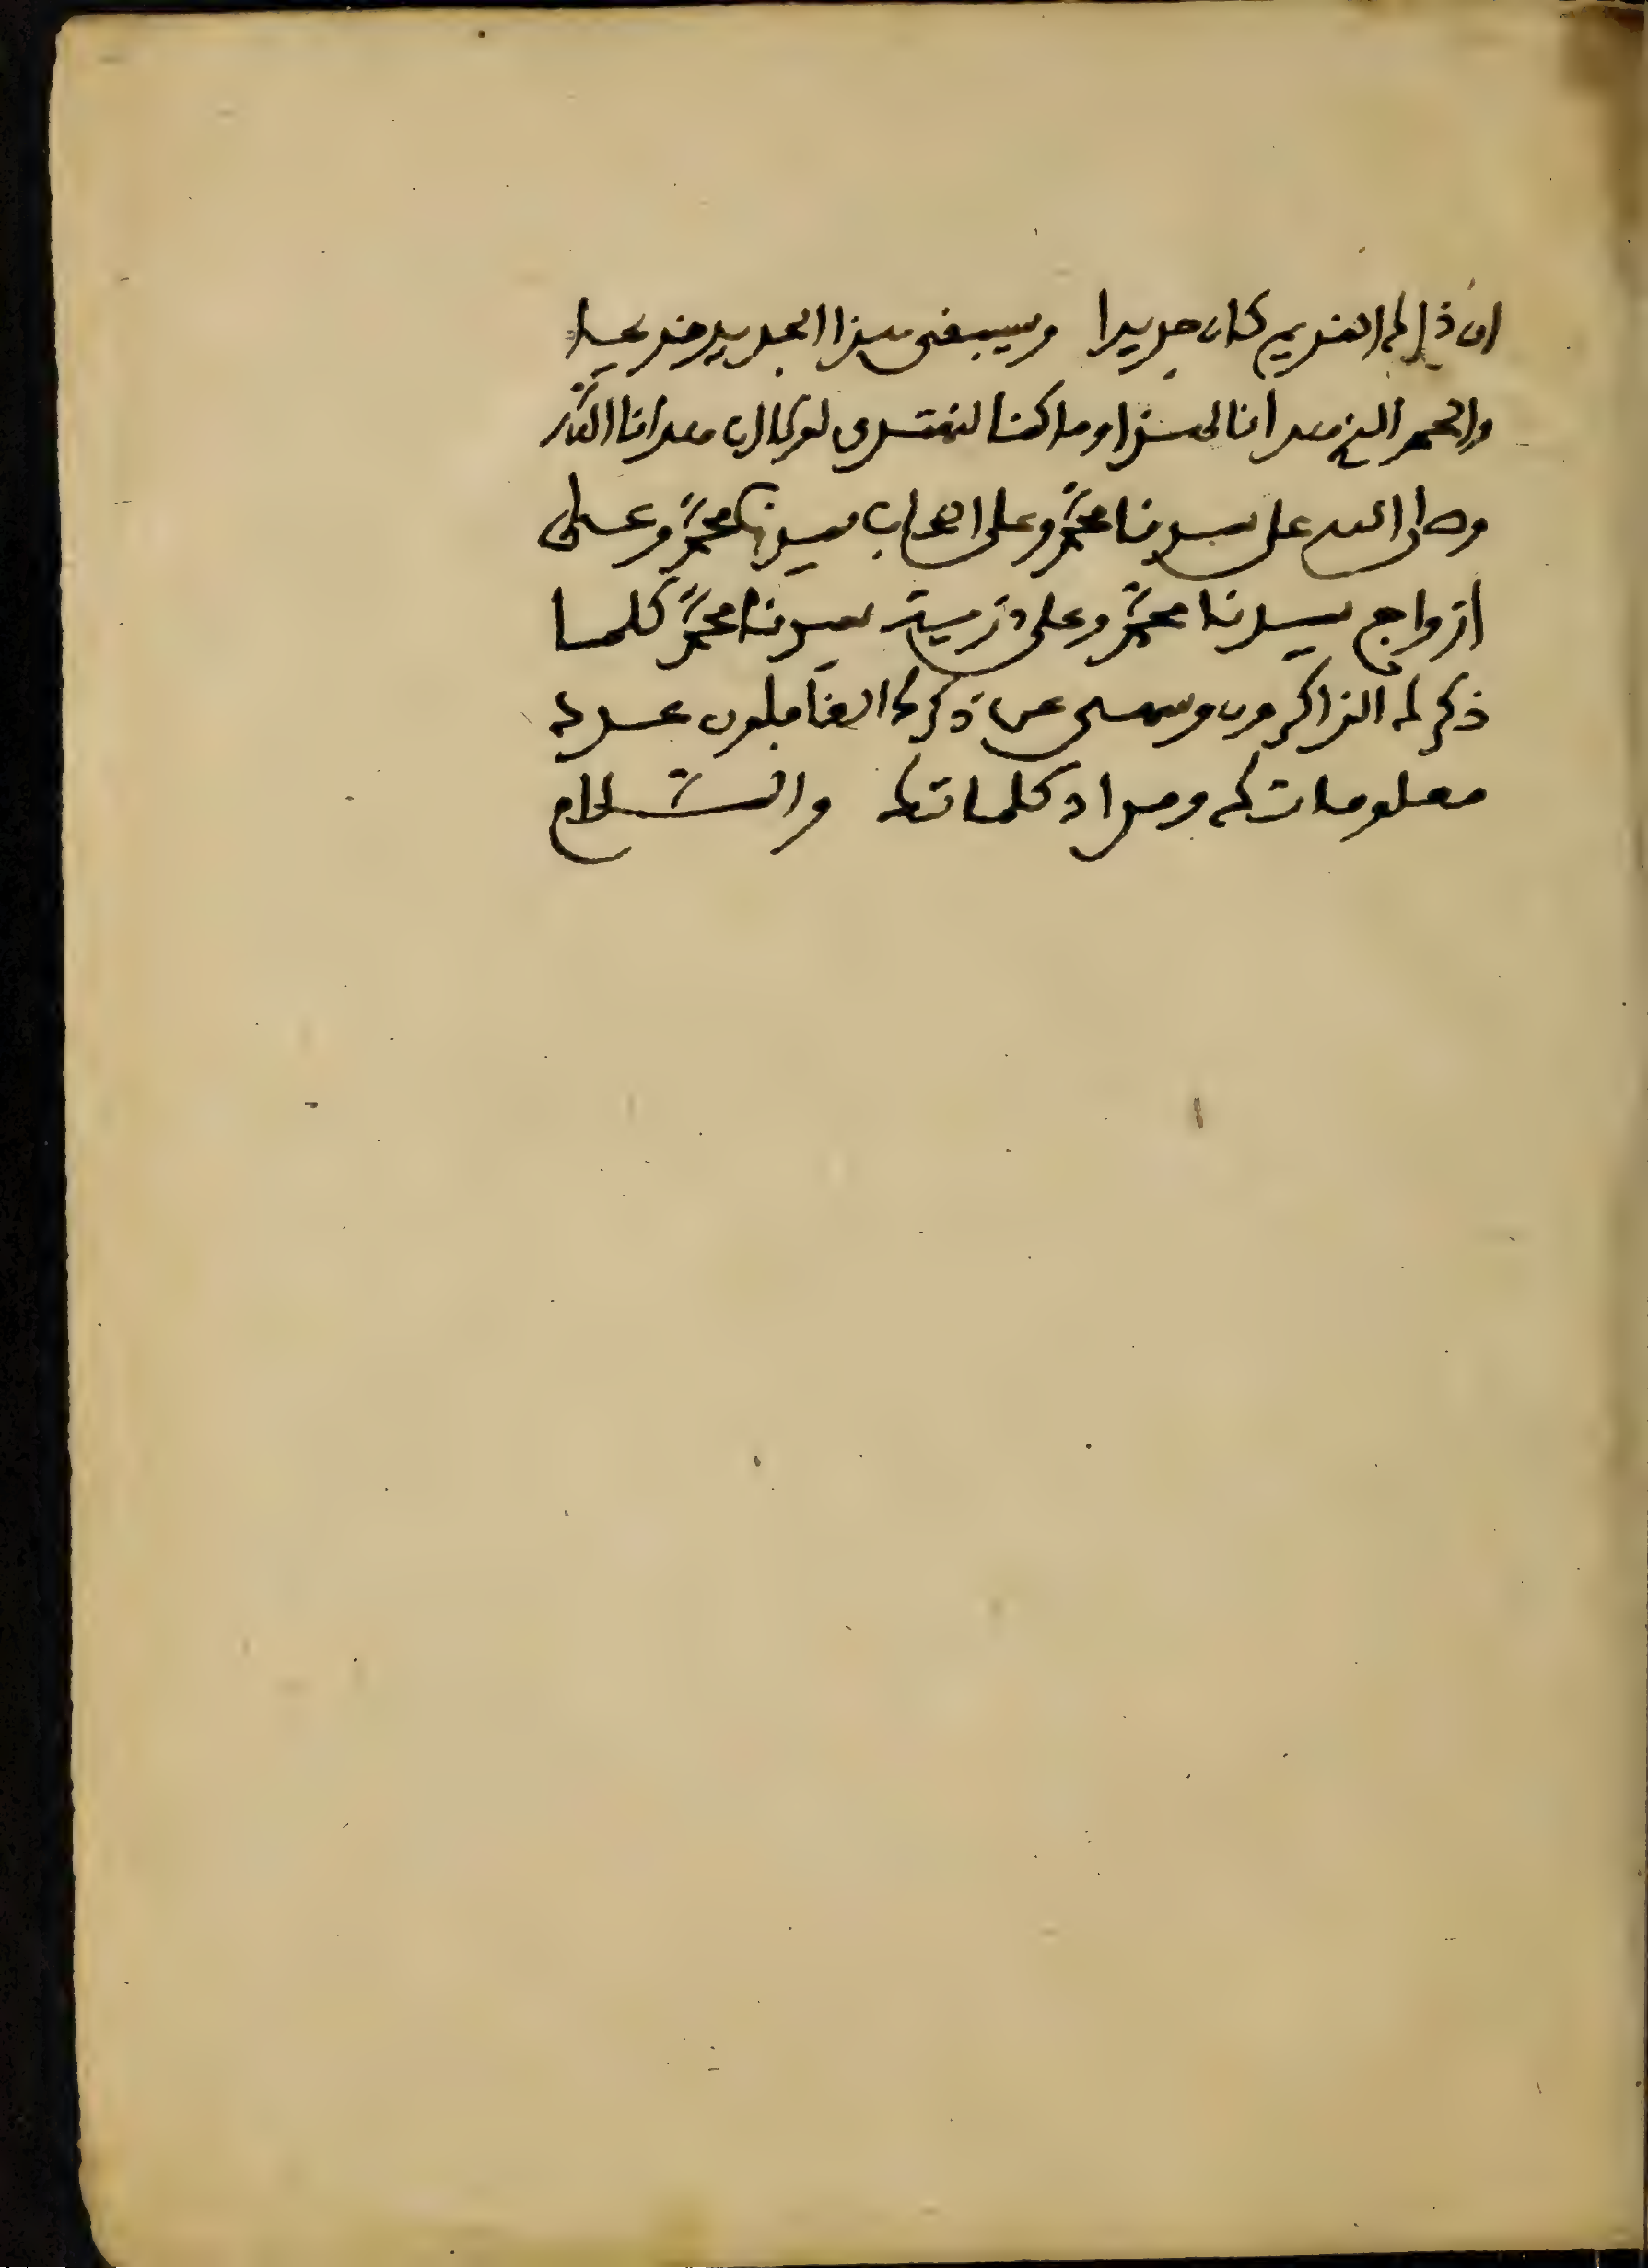 ان ذلك القديم كان جديدا وسيبقى هذا الجديد قديما
والحمد الذي هدانا لهذا وما كنا لنهتدي لولا ان هدانا الله
وصلى الله على سيدنا محمد وعلى اصحاب سيدنا محمد وعلى
ازواج سيدنا محمد وعلى ذرية سيدنا محمد كلما
ذكرك الذاكرون وسهى عن ذكرك الغافلون عدد
معلوماتك ومداد كلماتك والسلام